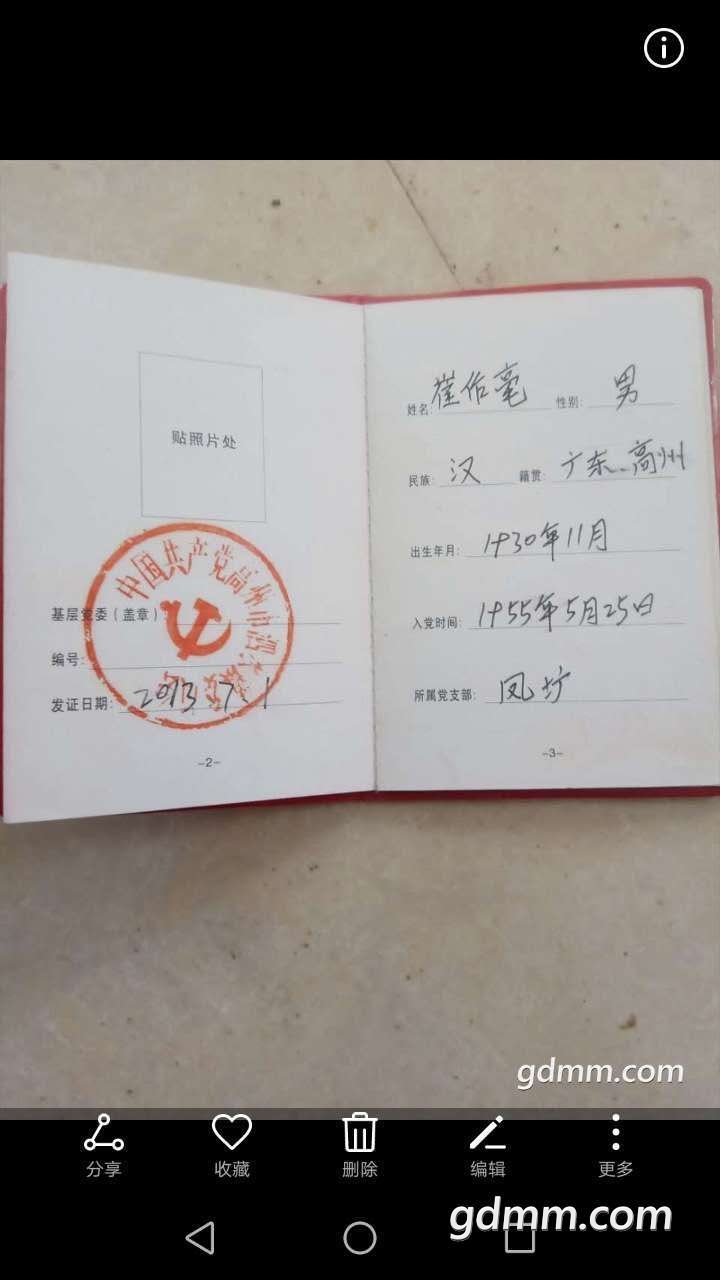 贴照片处
中国共产党高州市
基层党委（盖章）:
编号:
发证日期: 2013.7.1
-2-
姓名: 崔佑毫 性别: 男
民族: 汉 籍贯: 广东、高州
出生年月: 1930年11月
入党时间: 1955年5月25日
所属党支部: 凤圹
-3-
gdmm.com
分享 收藏 删除 编辑 更多
gdmm.com